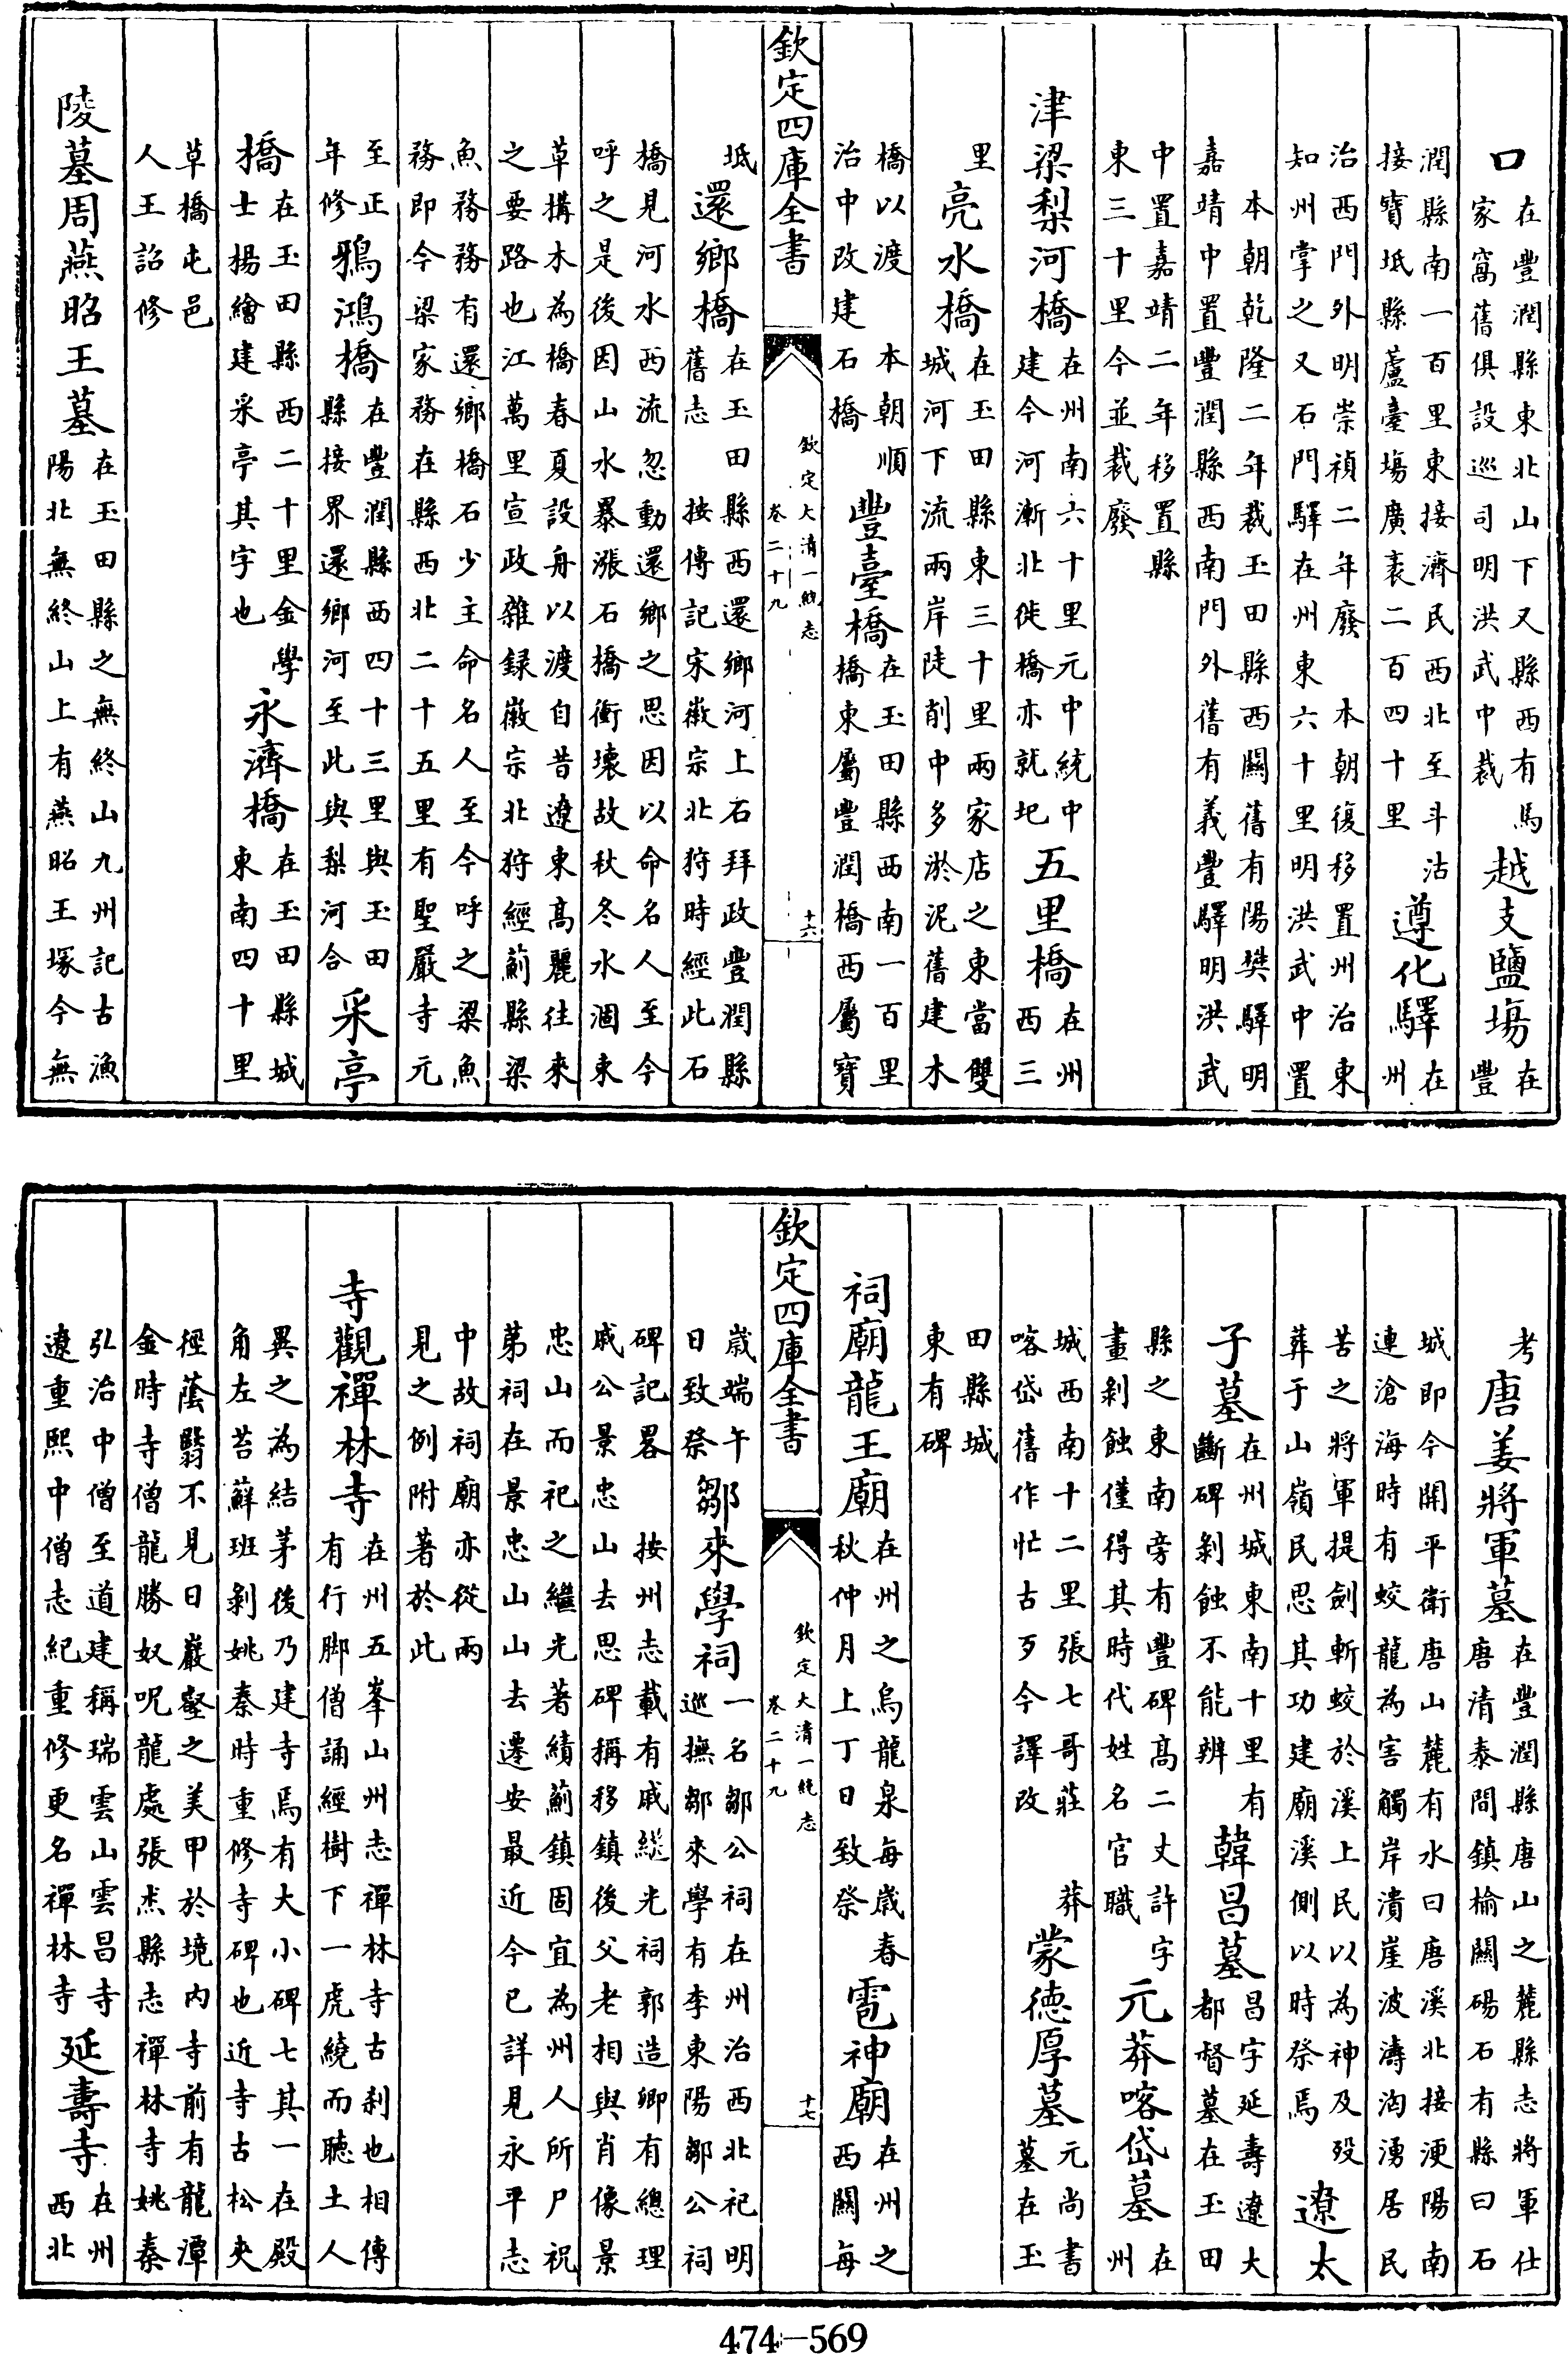 口在豐潤縣東北山下又縣西有馬家窩舊俱設巡司明洪武中裁越支鹽場在豐
潤縣南一百里東接濟民西北至斗沽接寶坻縣蘆臺場廣袤二百四十里遵化驛在州
治西門外明崇禎二年廢 本朝復移置州治東知州掌之又石門驛在州東六十里明洪武中置
本朝乾隆二年裁玉田縣西關舊有陽樊驛明嘉靖中置豐潤縣西南門外舊有義豐驛明洪武
中置嘉靖二年移置縣東三十里今並裁廢
津梁梨河橋在州南六十里元中統中建今河漸北徙橋亦就圮五里橋在州西三
里亮水橋在玉田縣東三十里兩家店之東當雙城河下流兩岸陡削中多淤泥舊建木
橋以渡 本朝順治中改建石橋豐臺橋在玉田縣西南一百里橋東屬豐潤橋西屬寶
欽定四庫全書 欽定大清一統志 卷二十九 十六
坻還鄉橋在玉田縣西還鄉河上石拜政豐潤縣舊志 按傳記宋徽宗北狩時經此石
橋見河水西流忽動還鄉之思因以命名人至今呼之是後因山水暴漲石橋衝壞故秋冬水涸束
草構木為橋春夏設舟以渡自昔遼東高麗往來之要路也江萬里宣政雜録徽宗北狩經薊縣梁
魚務務有還鄉橋石少主命名人至今呼之梁魚務即今梁家務在縣西北二十五里有聖嚴寺元
至正年修鴉鴻橋在豐潤縣西四十三里與玉田縣接界還鄉河至此與梨河合采亭
橋在玉田縣西二十里金學士楊繪建采亭其字也永濟橋在玉田縣城東南四十里
草橋屯邑人王詔修
陵墓周燕昭王墓在玉田縣之無終山九州記古漁陽北無終山上有燕昭王塚今無
考唐姜將軍墓在豐潤縣唐山之麓縣志將軍仕唐清泰間鎮榆關碭石有縣曰石
城即今開平衛唐山麓有水曰唐溪北接浭陽南連滄海時有蛟龍為害觸岸潰崖波濤洶湧居民
苦之將軍提劍斬蛟於溪上民以為神及歿葬于山嶺民思其功建廟溪側以時祭焉遼太
子墓在州城東南十里有斷碑剝蝕不能辨韓昌墓昌字延壽遼大都督墓在玉田
縣之東南旁有豐碑高二丈許字畫剝蝕僅得其時代姓名官職元莽喀岱墓在州
城西南十二里張七哥莊 莽喀岱舊作忙古歹今譯改蒙德厚墓元尚書墓在玉
田縣城東有碑
祠廟龍王廟在州之烏龍泉每歲春秋仲月上丁日致祭雹神廟在州之西關每
欽定四庫全書 欽定大清一統志 卷二十九 十七
歲端午日致祭鄒來學祠一名鄒公祠在州治西北祀明巡撫鄒來學有李東陽鄒公祠
碑記畧 按州志載有戚繼光祠郭造卿有總理戚公景忠山去思碑稱移鎮後父老相與肖像景
忠山而祀之繼光著績薊鎮固宜為州人所尸祝第祠在景忠山山去遷安最近今已詳見永平志
中故祠廟亦從兩見之例附著於此
寺觀禪林寺在州五峯山州志禪林寺古刹也相傳有行脚僧誦經樹下一虎繞而聽土人
異之為結茅後乃建寺焉有大小碑七其一在殿角左苔蘚班剝姚秦時重修寺碑也近寺古松夾
徑蔭翳不見日巖壑之美甲於境內寺前有龍潭金時寺僧龍勝奴呪龍處張杰縣志禪林寺姚秦
弘治中僧至道建稱瑞雲山雲昌寺遼重熙中僧志紀重修更名禪林寺延壽寺在州西北
474—569